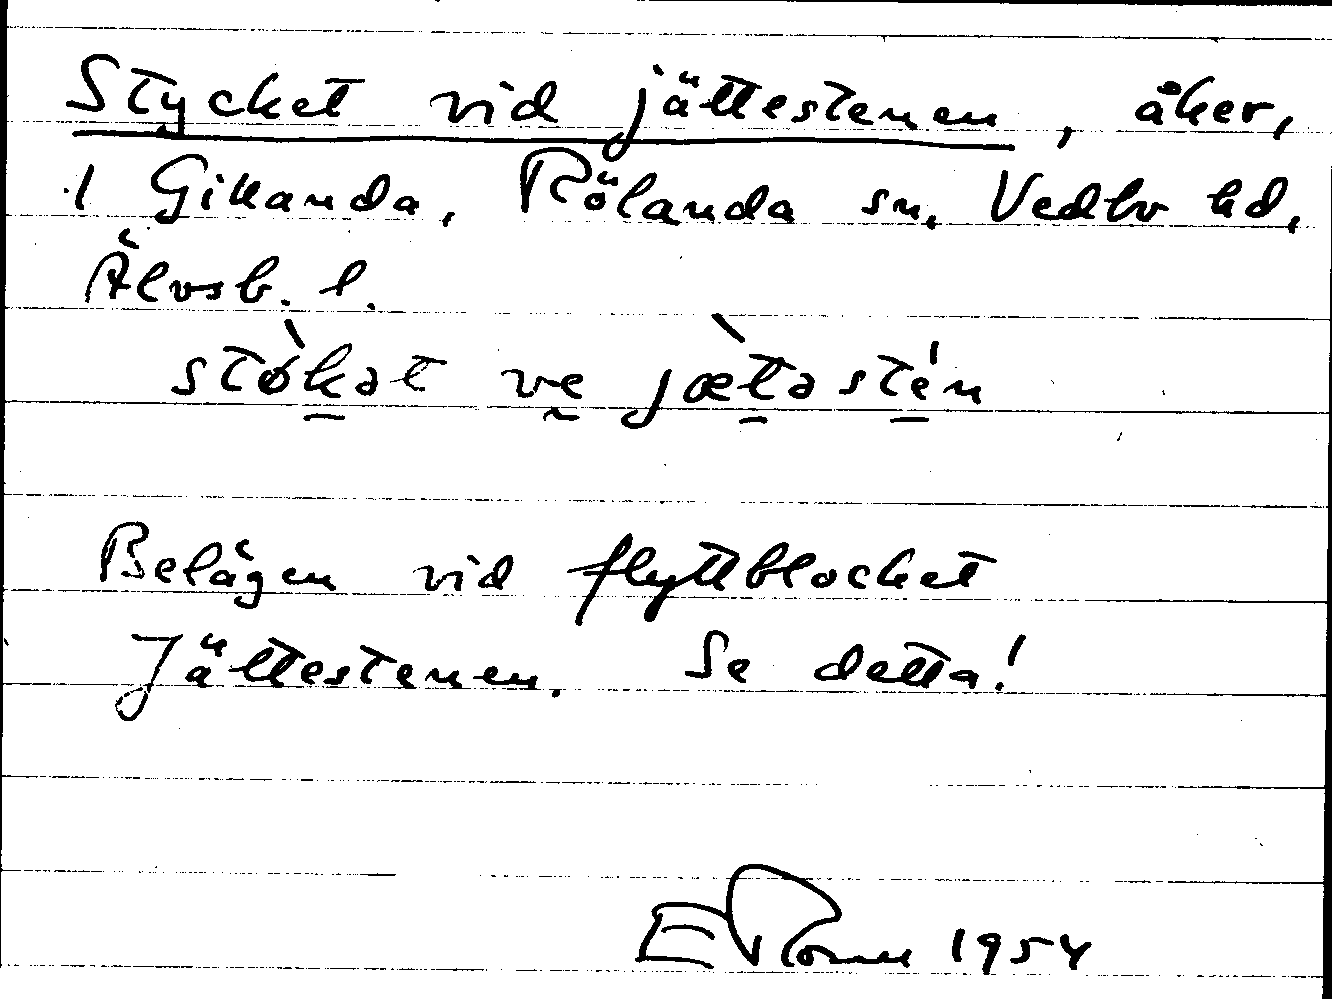 Stycket vid jättestenen, åker,
1 Gillanda, Rölanda sn, Vedbo hd,
Älvsb. l.
stòkət ve jætəstén
Belägen vid flyttblocket
Jättestenen. Se detta!
1954